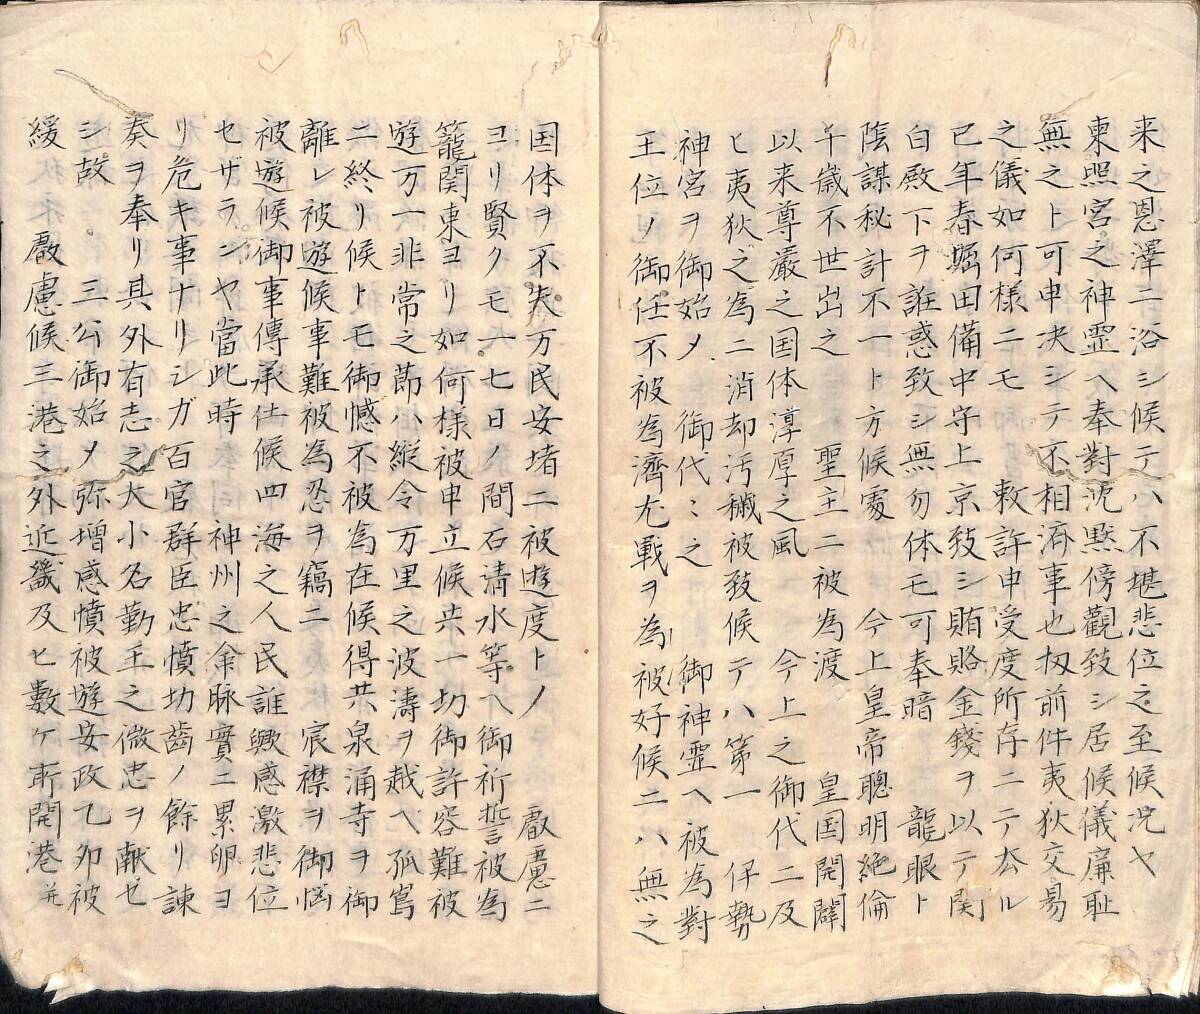 来之恩澤ニ浴シ候テハ不堪悲位之至候况ヤ
東照宮之神霊ヘ奉對沈黙傍觀致シ居候儀廉耻
無之ト可申决シテ不相濟事也扨前件夷狄交易
之儀如何様ニモ　　敕許申受度所存ニテ去ル
巳年春堀田備中守上京致シ賄賂金錢ヲ以テ関
白殿下ヲ誑惑致シ無勿体モ可奉暗　　龍眼ト
陰謀秘計不一ト方候處　　今上皇帝聰明絶倫
千歳不世出之　　聖主ニ被為渡　　皇国開闢
以来尊嚴之国体淳厚之風　　今上之御代ニ及
ヒ夷狄之為ニ消却汚穢被致候テハ第一　伊勢
神宮ヲ御始メ　御代〻之　　御神霊ヘ被為對
王位ノ御任不被為濟尤戰ヲ為被好候ニハ無之
国体ヲ不失万民安堵ニ被遊度トノ　　叡慮ニ
ヨリ賢クモ一七日ノ間石清水等ヘ御祈誓被為
籠関東ヨリ如何様被申立候共一切御許容難被
遊万一非常之節ハ縦令万里之波濤ヲ越ヘ孤嶌
ニ終リ候トモ御憾不被為在候得共泉涌寺ヲ御
離レ被遊候事難被為忍ヲ竊ニ　　宸襟ヲ御悩
被遊候御事傳承仕候四海之人民誰歟感激悲位
セザランヤ當此時　　神州之命脉實ニ累卵ヨ
リ危キ事ナリシガ百官群臣忠憤切齒ノ餘リ諌
奏ヲ奉リ其外有志之大小名勤王之微忠ヲ献ゼ
シ故　　三公御始メ弥増感憤被遊安政乙卯被
緩　　叡慮候三港之外近畿及ヒ數ケ所開港并